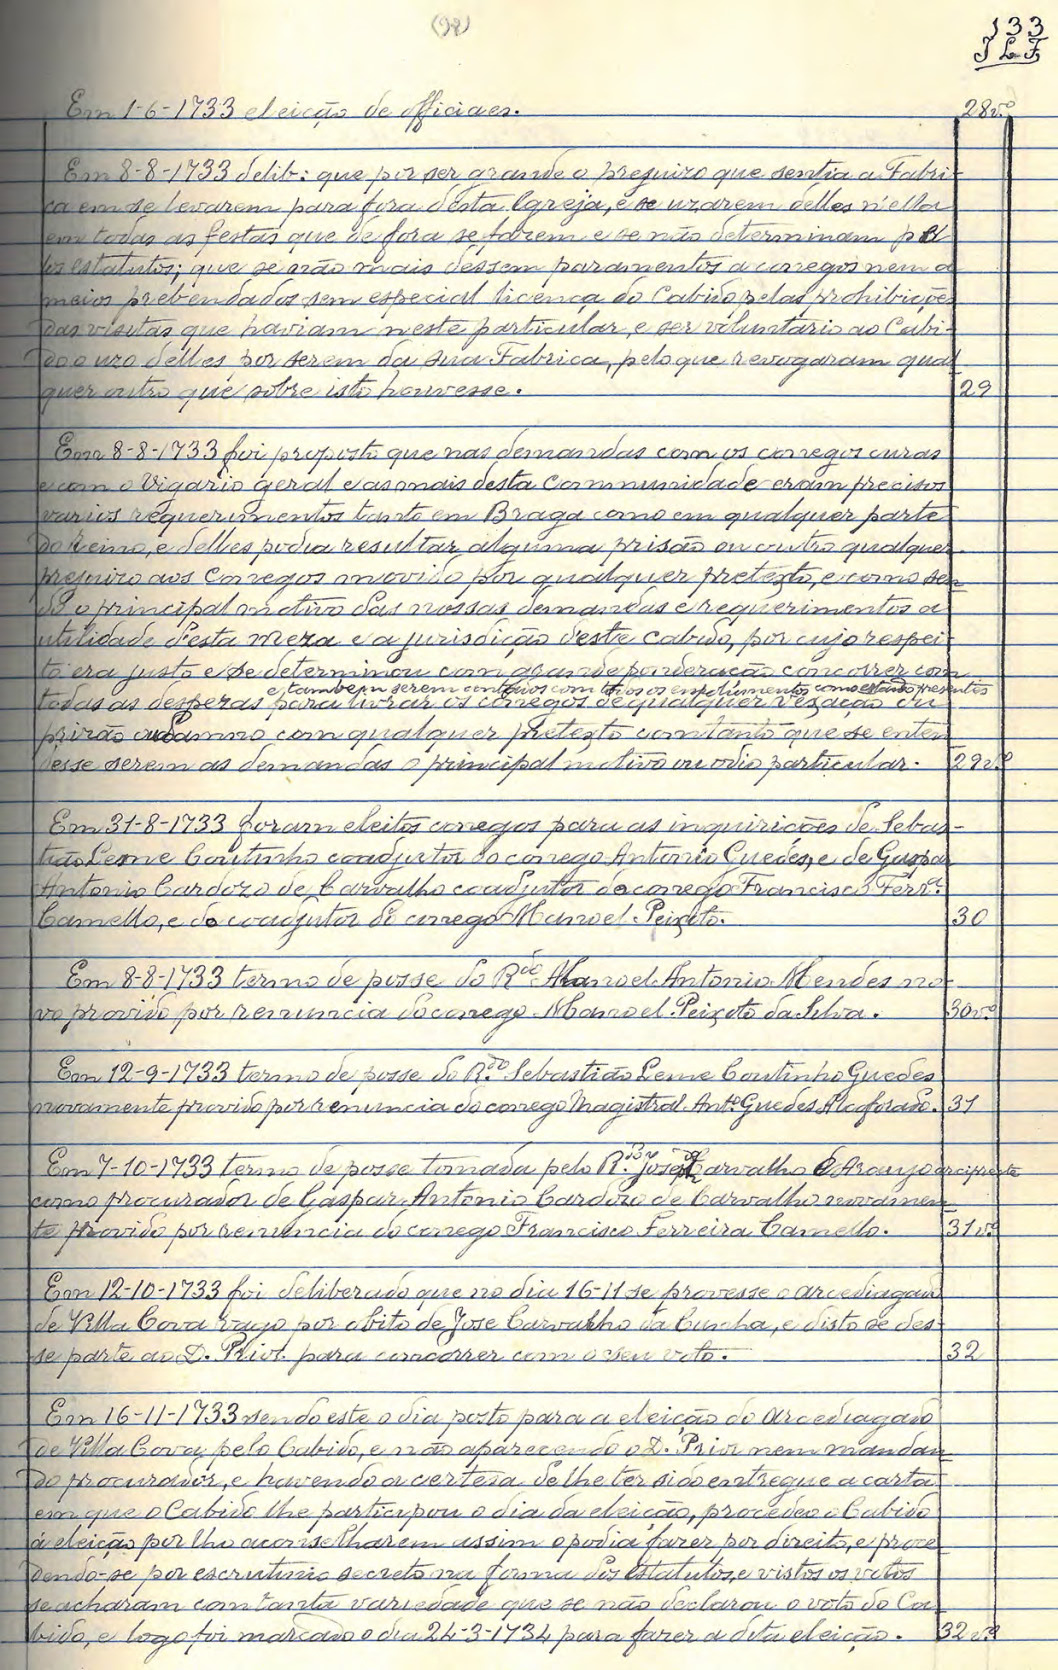 (98)
133
JLF
Em 1-6-1733 eleição de officiaes. 28v.º
Em 8-8-1733 delib: que por ser grande o prejuizo que sentia a Fabri-
ca em se levarem para fora desta Igreja, e se uzarem delles n'ella
em todas as festas que de fora se fazem e se não determinam pel
os estatutos; que se não mais dessem paramentos a conegos nem a
meios prebendados sem especial licença do Cabido pelas prohibições
das visitas que haviam neste particular, e ser voluntario ao Cabi-
do o uzo delles por serem da sua Fabrica, pelo que revogaram qual
quer outro que sobre isto houvesse. 29
Em 8-8-1733 foi proposto que nas demandas com os conegos curas
e com o Vigario geral e as mais desta Communidade eram precisos
varios requerimentos tanto em Braga como em qualquer parte
do Reino, e delles podia resultar alguma prisão ou outro qualquer
prejuizo aos Conegos movido por qualquer pretexto, e como sen
do o principal motivo das nossas demandas e requerimentos a
utilidade desta Meza e a jurisdição deste Cabido, por cujo respei-
to era justo e se determinou com grande ponderação concorrer com
e tambem serem contados com todos os emolumentos como estando presentes
todas as despezas para livrar os conegos de qualquer vexação ou
prizão ou damno com qualquer pretexto comtanto que se enten
desse serem as demandas o principal motivo ou odio particular. 29v.º
Em 31-8-1733 foram eleitos conegos para as inquirições de Sebas-
tião Leme Coutinho coadjutor do conego Antonio Guedes, e de Gaspar
Antonio Cardozo de Carvalho coadjutor do conego Francisco Ferrª.
Camello, e do coadjutor do conego Manoel Peixoto. 30
Em 8-8-1733 termo de posse do R.do Manoel Antonio Mendes no-
vo provido por renuncia do conego Manoel Peixoto da Silva. 30v.º
Em 12-9-1733 termo de posse do R.do Sebastião Leme Coutinho Guedes
novamente provido por renuncia do conego Magistral Ant.º Guedes Alcoforado. 31
Em 7-10-1733 termo de posse tomada pelo R.do Dor José Carvalho d'Araujo arcipreste
como procurador de Gaspar Antonio Cardozo de Carvalho novamen
te provido por renuncia do conego Francisco Ferreira Camello. 31v.º
Em 12-10-1733 foi deliberado que no dia 16-11 se provesse o arcediagado
de Villa Cova vago por obito de Jose Carvalho da Cunha, e disto se des-
se parte ao D. Prior para concorrer com o seu voto. 32
Em 16-11-1733 sendo este o dia posto para a eleição do arcediagado
de Villa Cova pelo Cabido, e não aparecendo o D. Prior nem mandan
do procurador, e havendo a certesa de lhe ter sido entregue a carta
em que o Cabido lhe participou o dia da eleição, procedeo o Cabido
á eleição por lho aconselharem assim o podia fazer por direito, e proce
dendo-se por escrutinio secreto na forma dos Estatutos, e vistos os votos
se acharam com tanta variedade que se não declarou o voto do Ca
bido, e logo foi marcado o dia 24-3-1734 para fazer a dita eleição. 32v.º